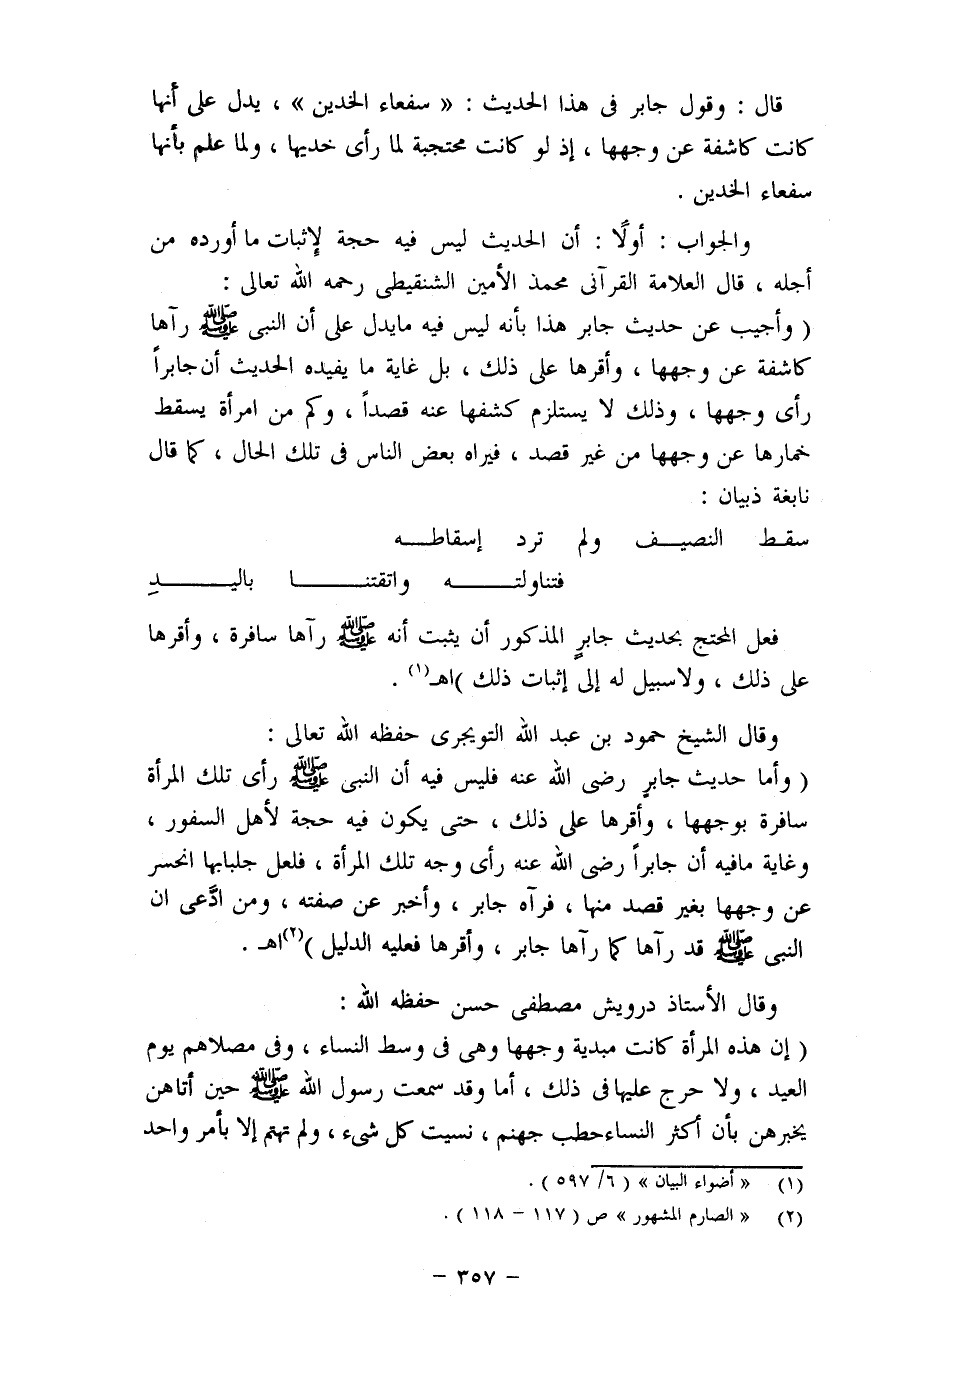 قال : وقول جابر فى هذا الحديث : « سفعاء الخدين » ، يدل على أنها
كانت كاشفة عن وجهها ، إذ لو كانت محتجبة لما رأى خديها ، ولما علم بأنها
سفعاء الخدين .
والجواب : أولًا : أن الحديث ليس فيه حجة لإثبات ما أورده من
أجله ، قال العلامة القرآنى محمد الأمين الشنقيطى رحمه الله تعالى :
( وأجيب عن حديث جابر هذا بأنه ليس فيه مايدل على أن النبى ﷺ رآها
كاشفة عن وجهها ، وأقرها على ذلك ، بل غاية ما يفيده الحديث أن جابراً
رأى وجهها ، وذلك لا يستلزم كشفها عنه قصداً ، وكم من امرأة يسقط
خمارها عن وجهها من غير قصد ، فيراه بعض الناس فى تلك الحال ، كما قال
نابغة ذبيان :
سقـط النصيـــف ولم ترد إسقاطـــه
فتناولتـــــه واتقتنـــــا باليـــــدِ
فعل المحتج بحديث جابرٍ المذكور أن يثبت أنه ﷺ رآها سافرة ، وأقرها
على ذلك ، ولاسبيل له إلى إثبات ذلك )اهـ(١) .
وقال الشيخ حمود بن عبد الله التويجرى حفظه الله تعالى :
( وأما حديث جابرٍ رضى الله عنه فليس فيه أن النبى ﷺ رأى تلك المرأة
سافرة بوجهها ، وأقرها على ذلك ، حتى يكون فيه حجة لأهل السفور ،
وغاية مافيه أن جابراً رضى الله عنه رأى وجه تلك المرأة ، فلعل جلبابها انحسر
عن وجهها بغير قصد منها ، فرآه جابر ، وأخبر عن صفته ، ومن ادَّعى ان
النبى ﷺ قد رآها كما رآها جابر ، وأقرها فعليه الدليل )(٢)اهـ .
وقال الأستاذ درويش مصطفى حسن حفظه الله :
( إن هذه المرأة كانت مبدية وجهها وهى فى وسط النساء ، وفى مصلاهم يوم
العيد ، ولا حرج عليهافى ذلك ، أما وقد سمعت رسول الله ﷺ حين أتاهن
يخبرهن بأن أكثر النساءحطب جهنم ، نسيت كل شىء ، ولم تهتم إلا بأمر واحد
(١) « أضواء البيان » ( ٦/ ٥٩٧ ) .
(٢) « الصارم المشهور » ص ( ١١٧ - ١١٨ ) .
- ٣٥٧ -